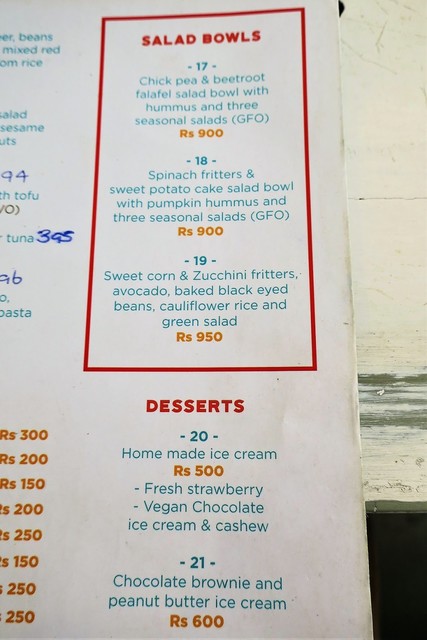 er, beans
mixed red
om rice
salad
sesame
uts
94
th tofu
/O)
tuna 395
ab
o,
pasta
Rs 300
Rs 200
Rs 150
Rs 200
Rs 250
Rs 150
250
250
SALAD BOWLS
- 17 -
Chick pea & beetroot
falafel salad bowl with
hummus and three
seasonal salads (GFO)
Rs 900
- 18 -
Spinach fritters &
sweet potato cake salad bowl
with pumpkin hummus and
three seasonal salads (GFO)
Rs 900
- 19 -
Sweet corn & Zucchini fritters,
avocado, baked black eyed
beans, cauliflower rice and
green salad
Rs 950
DESSERTS
- 20 -
Home made ice cream
Rs 500
- Fresh strawberry
- Vegan Chocolate
ice cream & cashew
- 21 -
Chocolate brownie and
peanut butter ice cream
Rs 600